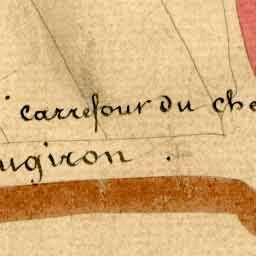 carrefour du che
ugiron .